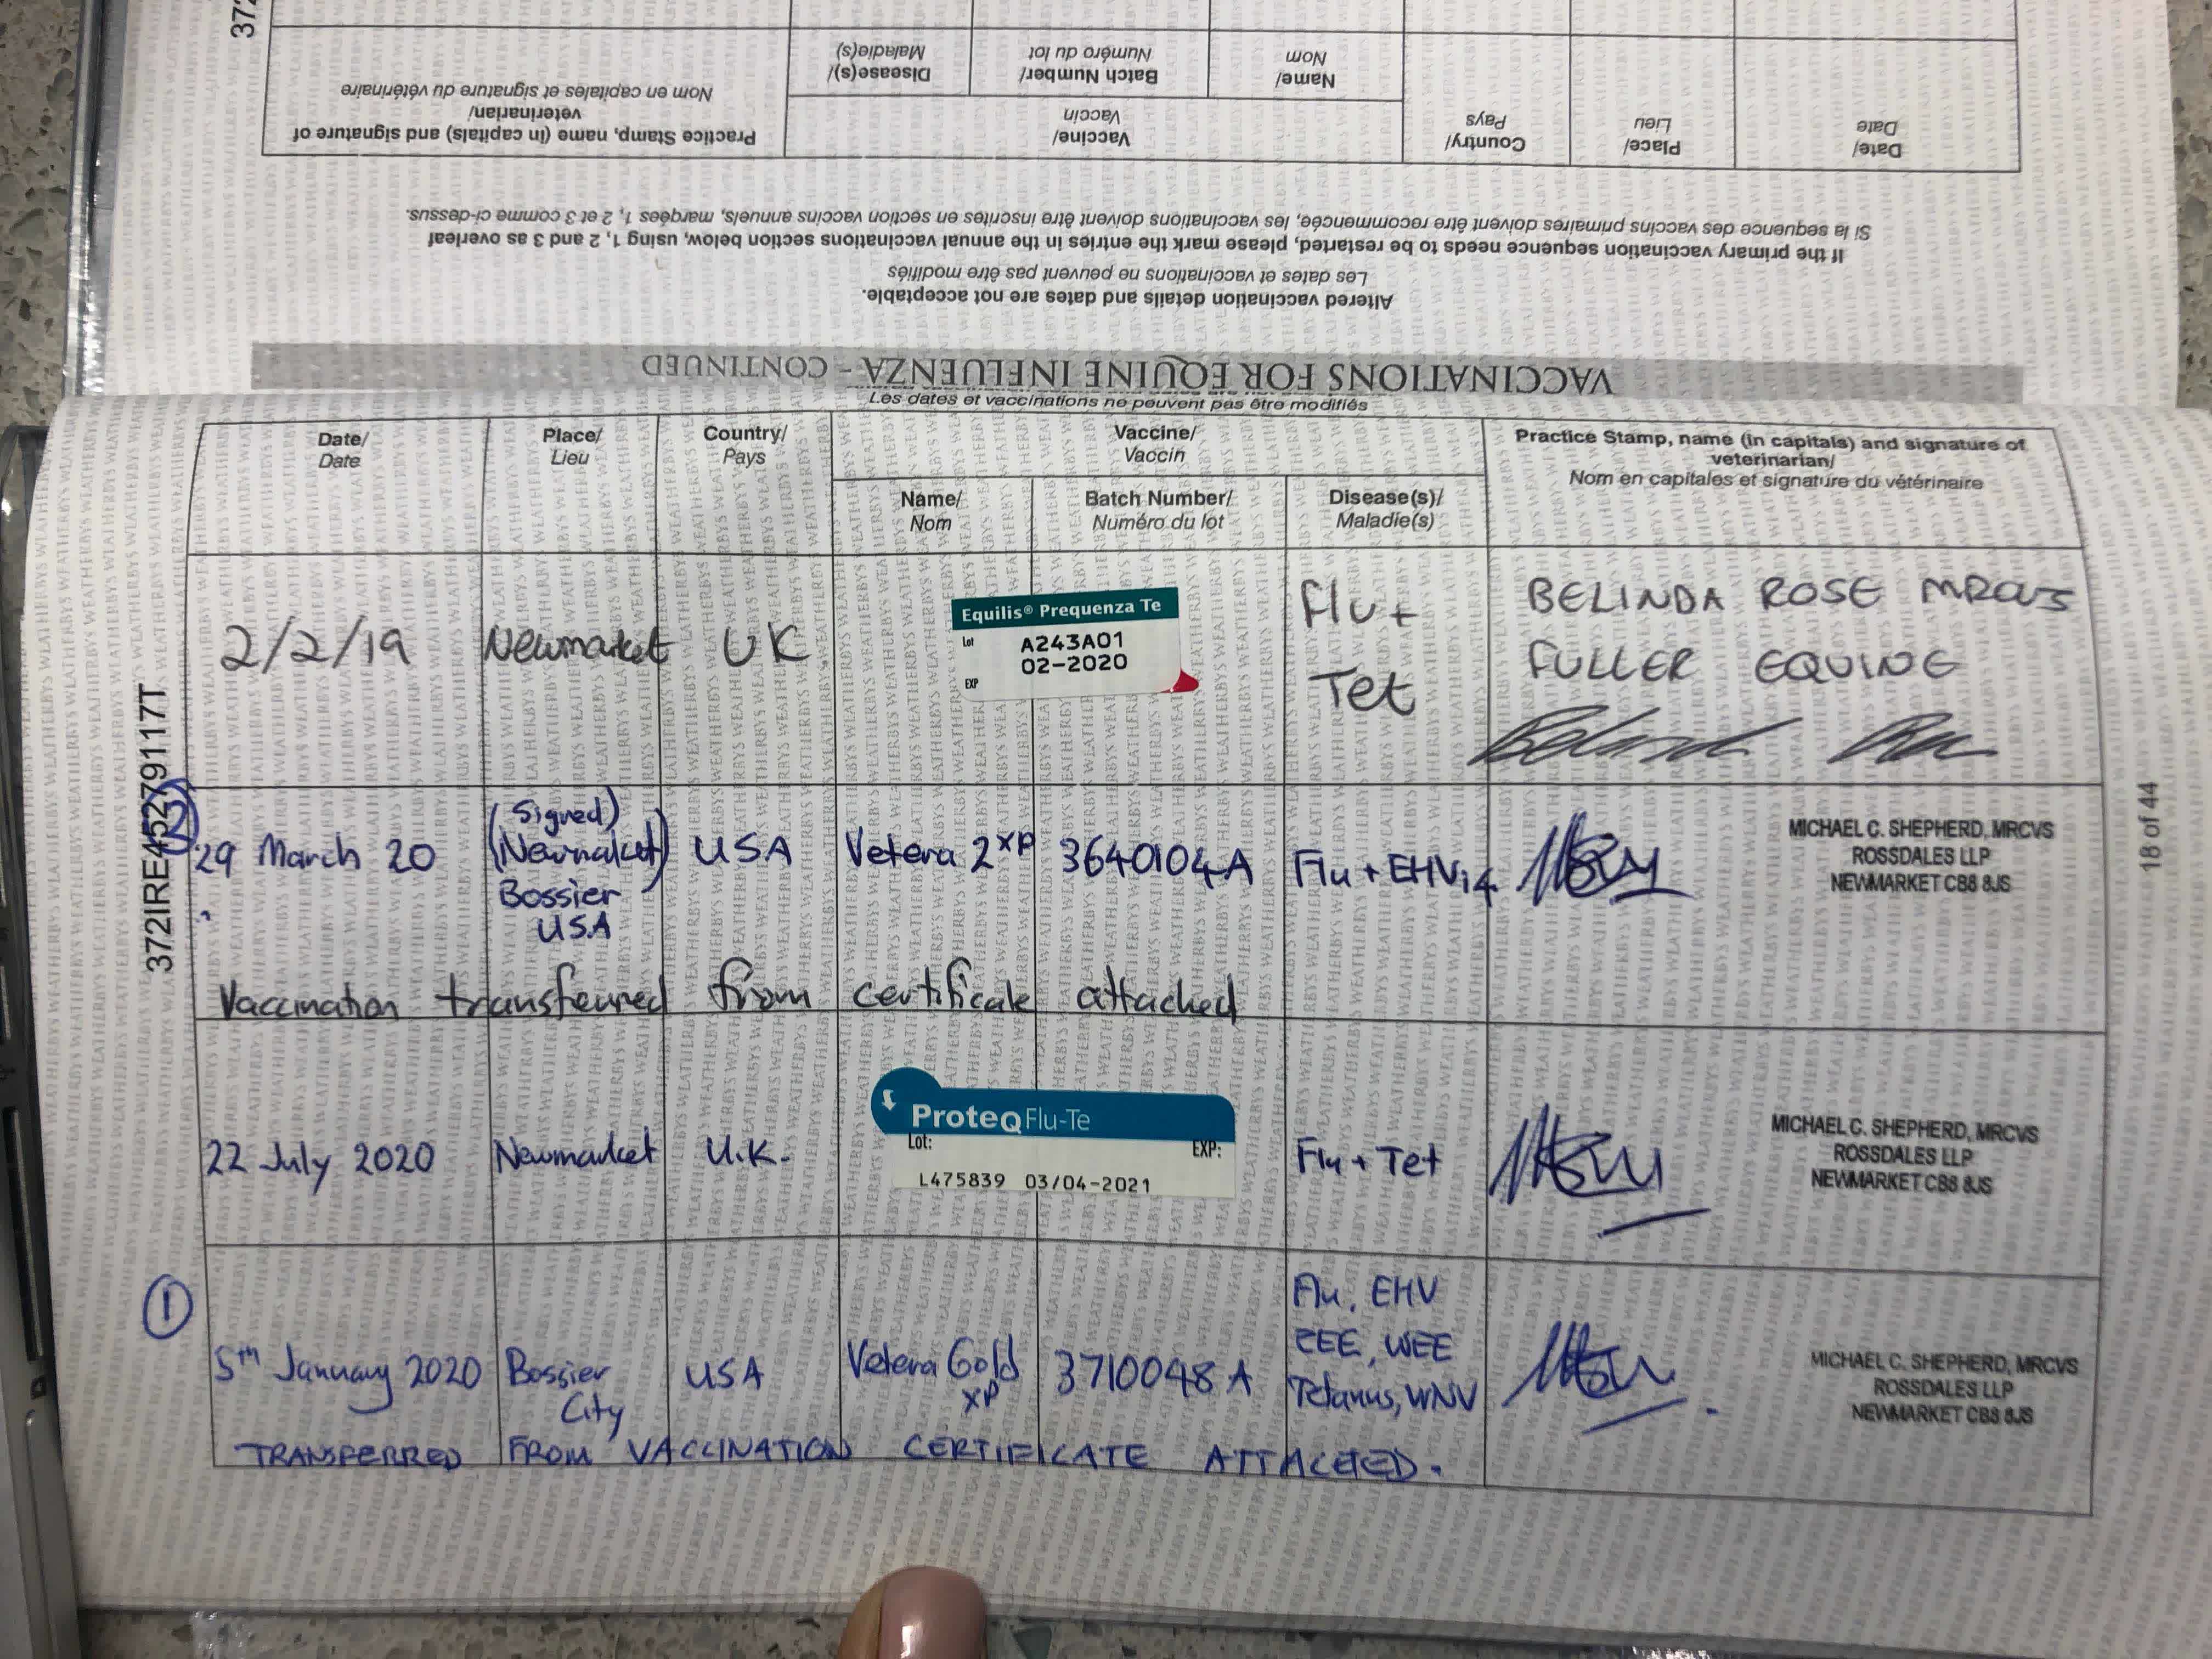 372
Practice Stamp, name (in capitals) and signature of
veterinarian/
Nom en capitales et signature du vétérinaire
Disease(s)/
Maladie(s)
Batch Number/
Numéro du lot
Name/
Nom
Vaccine/
Vaccin
Country/
Pays
Place/
Lieu
Date/
Date
Si la sequence des vaccins primaires doivent être recommencée, les vaccinations doivent être inscrites en section vaccins annuels, marqées 1, 2 et 3 comme ci-dessus.
If the primary vaccination sequence needs to be restarted, please mark the entries in the annual vaccinations section below, using 1, 2 and 3 as overleaf
Les dates et vaccinations ne peuvent pas être modifiés
Altered vaccination details and dates are not acceptable.
VACCINATIONS FOR EQUINE INFLUENZA - CONTINUED
Les dates et vaccinations ne peuvent pas être modifiés
Date/
Date
Place/
Lieu
Country/
Pays
Vaccine/
Vaccin
Name/
Nom
Batch Number/
Numéro du lot
Disease(s)/
Maladie(s)
Practice Stamp, name (in capitals) and signature of
veterinarian/
Nom en capitales et signature du vétérinaire
2/2/19
Newmarket
UK
Equilis® Prequenza Te
Lot A243A01
EXP 02-2020
Flu +
Tet
BELINDA ROSE MRCVS
FULLER EQUINE
372IRE45279117T
18 of 44
2
29 March 20
(Signed)
(Newmarket)
Bossier
USA
USA
Vetera 2XP
3640104A
Flu + EHV1,4
MICHAEL C. SHEPHERD, MRCVS
ROSSDALES LLP
NEWMARKET CB8 8JS
Vaccination transferred from certificate attached
22 July 2020
Newmarket
U.K.
ProteqFlu-Te
Lot: EXP:
L475839 03/04-2021
Flu + Tet
MICHAEL C. SHEPHERD, MRCVS
ROSSDALES LLP
NEWMARKET CB8 8JS
1
5th January 2020
Bossier
City
USA
Vetera Gold
XP
3710048A
Flu, EHV
EEE, WEE
Tetanus, WNV
MICHAEL C. SHEPHERD, MRCVS
ROSSDALES LLP
NEWMARKET CB8 8JS
TRANSFERRED FROM VACCINATION CERTIFICATE ATTACHED.